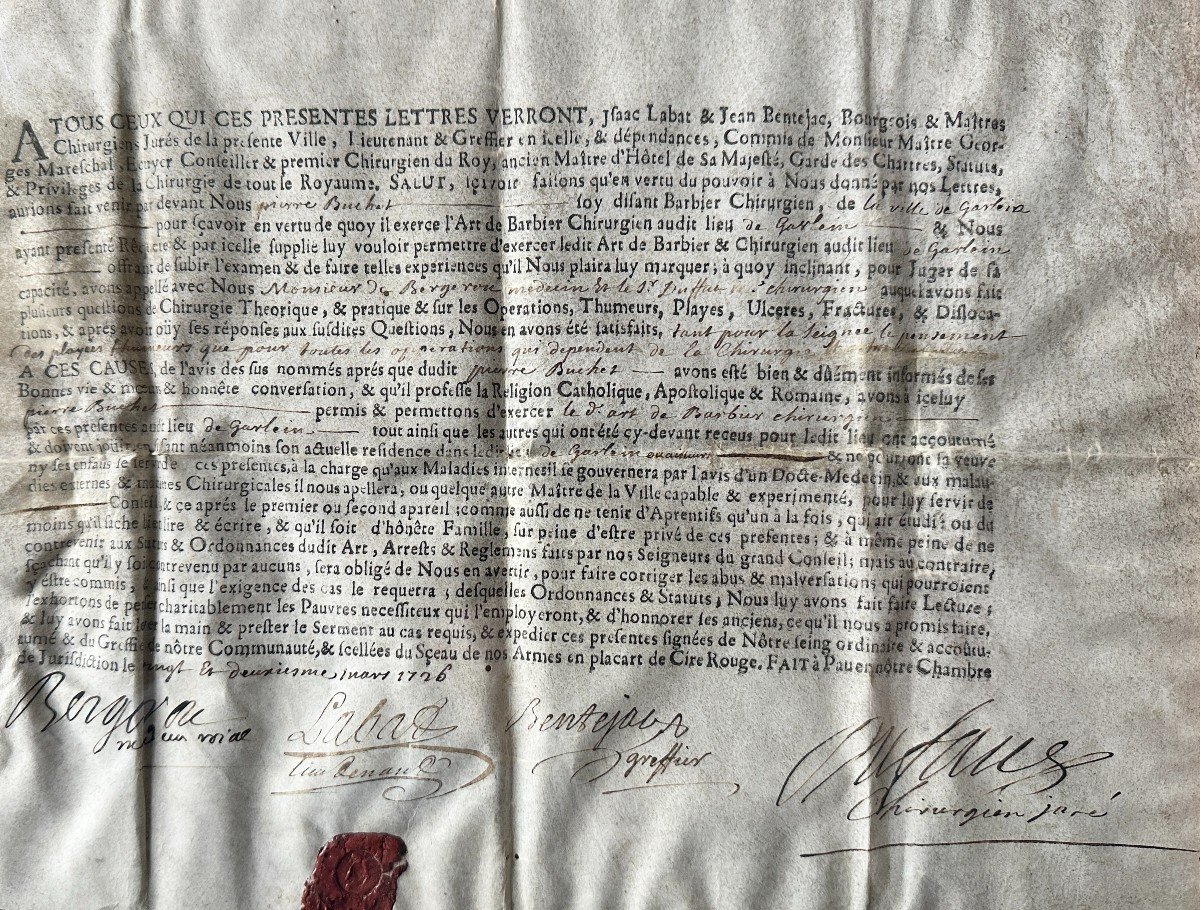 A TOUS CEUX QUI CES PRESENTES LETTRES VERRONT, Jsaac Labat & Jean Bentejac, Bourgeois & Maîtres
Chirurgiens Jurés de la presente Ville, Lieutenant & Greffier en icelle, & dépendances, Commis de Monsieur Maître Geor-
ges Mareschal, Ecuyer Conseiller & premier Chirurgien du Roy, ancien Maître d'Hôtel de Sa Majesté, Garde des Chartres, Statuts,
& Privileges de la Chirurgie de tout le Royaume, SALUT, sçavoir faisons qu'en vertu du pouvoir à Nous donné par nos Lettres,
aurions fait venir par devant Nous pierre Buchet soy disant Barbier Chirurgien, de la ville de Garlein
pour sçavoir en vertu de quoy il exerce l'Art de Barbier Chirurgien audit lieu de Garlein & Nous
ayant presenté Requête & par icelle supplié luy vouloir permettre d'exercer ledit Art de Barbier & Chirurgien audit lieu de Garlein
offrant de subir l'examen & de faire telles experiences qu'il Nous plaira luy marquer; à quoy inclinant, pour Juger de sa
capacité, avons appellé avec Nous Monsieur de Bergeroue medecin Et le Sr. chirurgien auquel avons fait
plusieurs questions de Chirurgie Theorique, & pratique & sur les Operations, Thumeurs, Playes, Ulceres, Fractures, & Disloca-
tions, & aprés avoir oüy ses réponses aux susdites Questions, Nous en avons été satisfaits, tant pour la seignee le pensement
des playes thumeurs que pour toutes les opperations qui dependent de la Chirurgie
A CES CAUSES, de l'avis des sus nommés aprés que dudit pierre Buchet avons esté bien & dûëment informés de ses
Bonnes vie & mœurs & honnête conversation, & qu'il professe la Religion Catholique, Apostolique & Romaine, avons à iceluy
pierre Buchet permis & permettons d'exercer le d. art de Barbier chirurgien
par ces presentes audit lieu de Garlein tout ainsi que les autres qui ont été cy-devant receus pour ledit lieu ont accoutumé
& doivent joüir, en faisant néanmoins son actuelle residence dans ledit lieu de Garlein & ne pourront sa veuve
ny ses enfans se servir de ces presentes, à la charge qu'aux Maladies internes il se gouvernera par l'avis d'un Docte Medecin, & aux mala-
dies externes & Chirurgicales il nous apellera, ou quelque autre Maître de la Ville capable & experimenté, pour luy servir de
Conseil, & ce aprés le premier ou second apareil; comme aussi de ne tenir d'Aprentifs qu'un à la fois, qui ait étudié ou du
moins qu'il sçache bien lire & écrire, & qu'il soit d'hônête Famille, sur peine d'estre privé de ces presentes; & à même peine de ne
contrevenir aux Statuts & Ordonnances dudit Art, Arrests & Reglemens faits par nos Seigneurs du grand Conseil; mais au contraire,
sçachant qu'il y soit contrevenu par aucuns, sera obligé de Nous en avertir, pour faire corriger les abus & malversations qui pourroient
y éstre commis, ainsi que l'exigence des cas le requerra; desquelles Ordonnances & Statuts, Nous luy avons fait faire Lecture;
l'exhortons de penser charitablement les Pauvres necessiteux qui l'employeront, & d'honnorer les anciens, ce qu'il nous a promis faire,
& luy avons fait lever la main & prester le Serment au cas requis, & expedier ces presentes signées de Nôtre seing ordinaire & accoutu-
tumé & du Greffier de nôtre Communauté, & scellées du Sçeau de nos Armes en placart de Cire Rouge. FAIT à Pau en nôtre Chambre
de Jurisdiction le vingt Et deuxiesme mars 1726
Bergeroue Labat Bentejac
greffier
Chirurgien juré